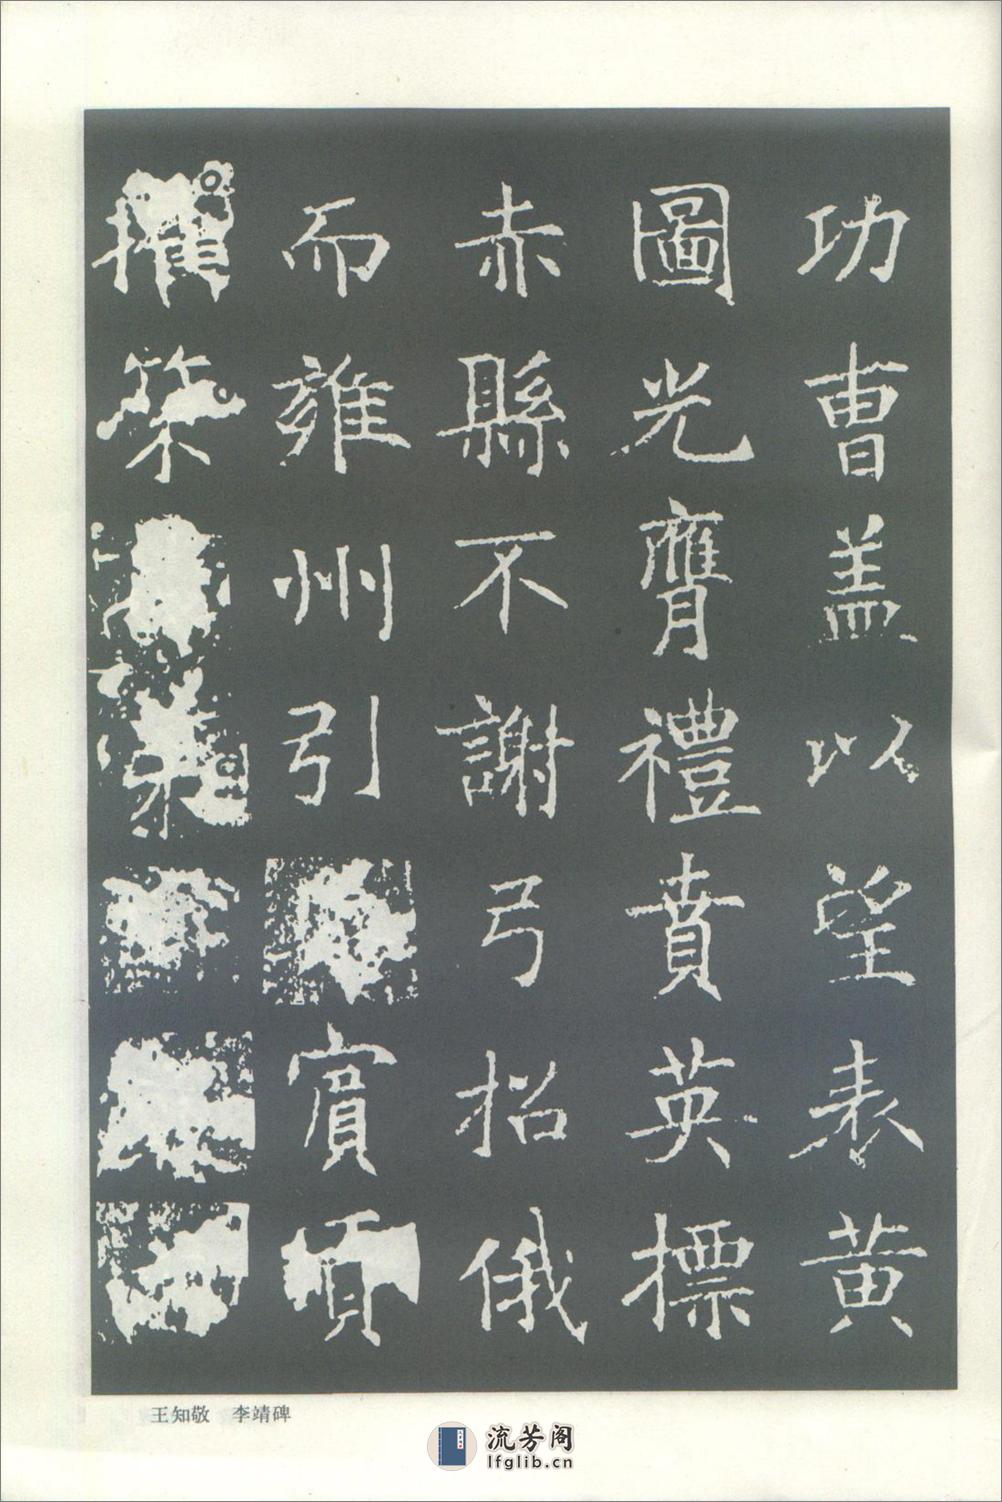 功曹盖以望表黄
圖光膺禮賁英標
赤縣不謝弓招俄
而雍州引賓貢
擢策
王知敬 李靖碑
流芳阁
lfglib.cn